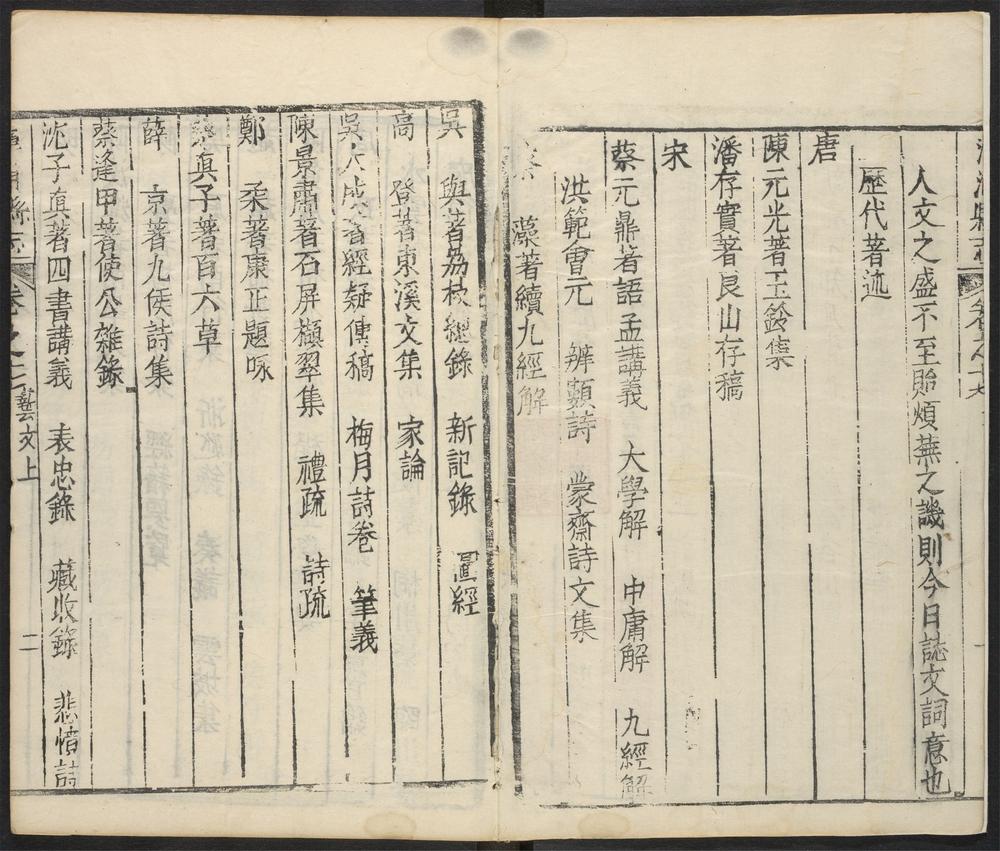 人文之盛不至貽煩蕪之譏則今日誌文詞意也
歷代著述
唐
陳元光著玉鈐集
潘存實著良山存稿
宋
蔡元鼎著語孟講義 大學解 中庸解 九經解
洪範會元 辨類詩 蒙齋詩文集
蔡 藻著續九經解
吳 與著荔枝總錄 新記錄 圖經
高 登著東溪文集 家論
吳大成著經疑傳稿 梅月詩卷 筆義
陳景肅著石屏擷翠集 禮疏 詩疏
鄭 柔著康正題啄
真子著百六草
薛 京著九侯詩集
蔡逢甲著使公雜錄
沈子真著四書講義 表忠錄 藏收錄 悲憤詩
卷之十二藝文上 二